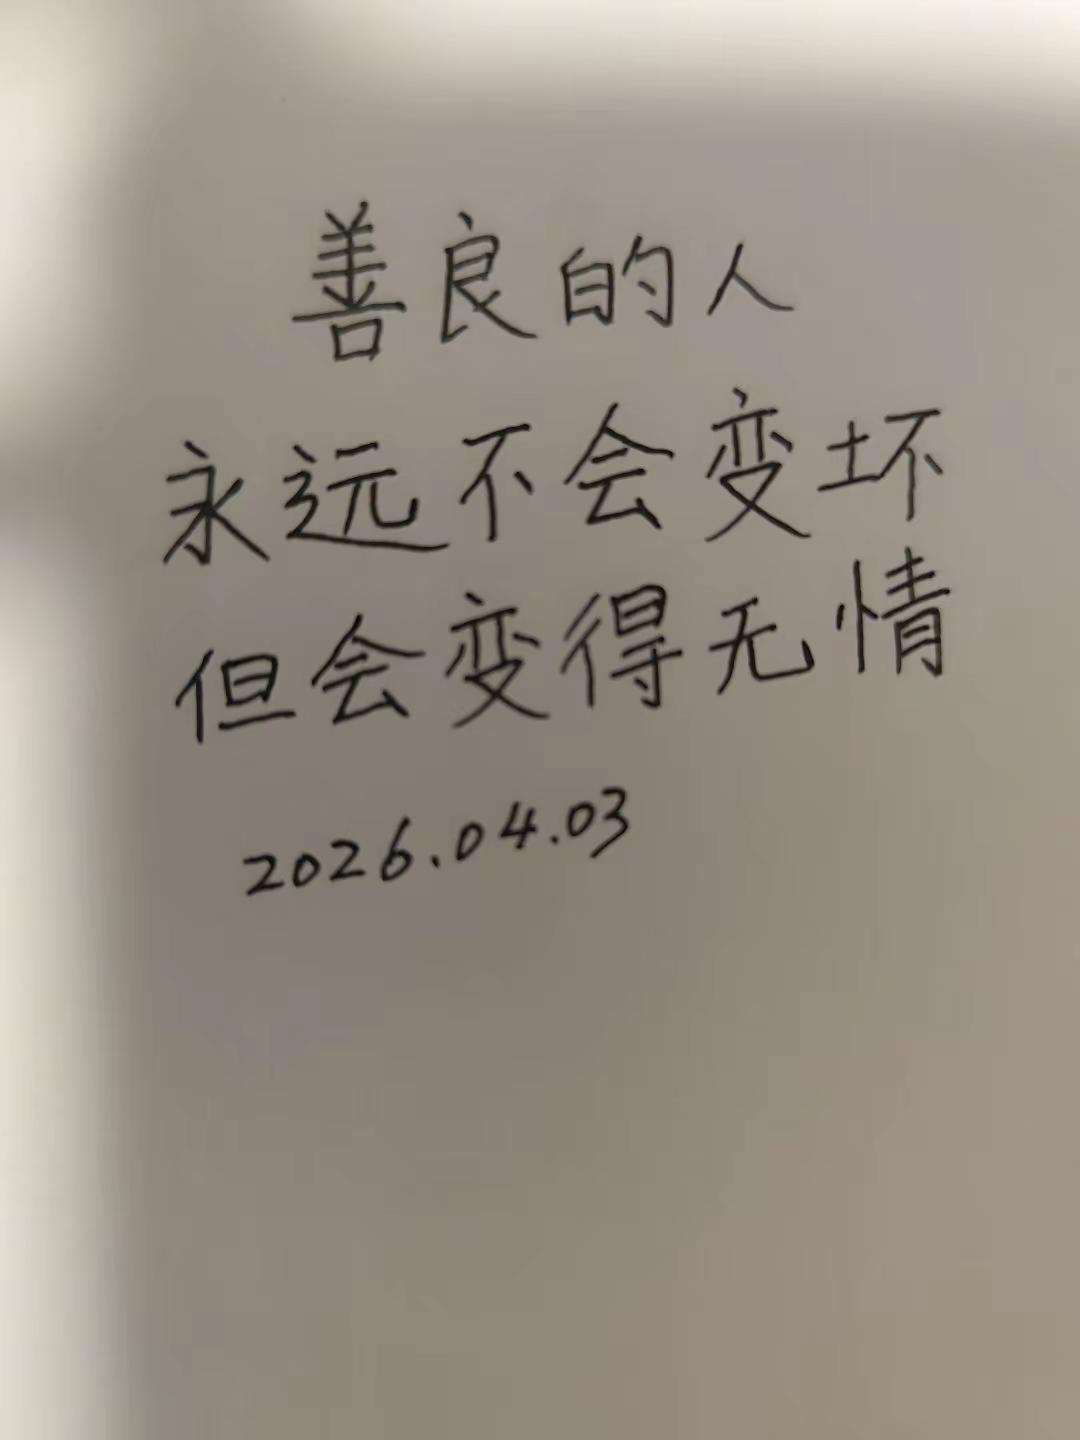 善良的人
永远不会变坏
但会变得无情
2026.04.03